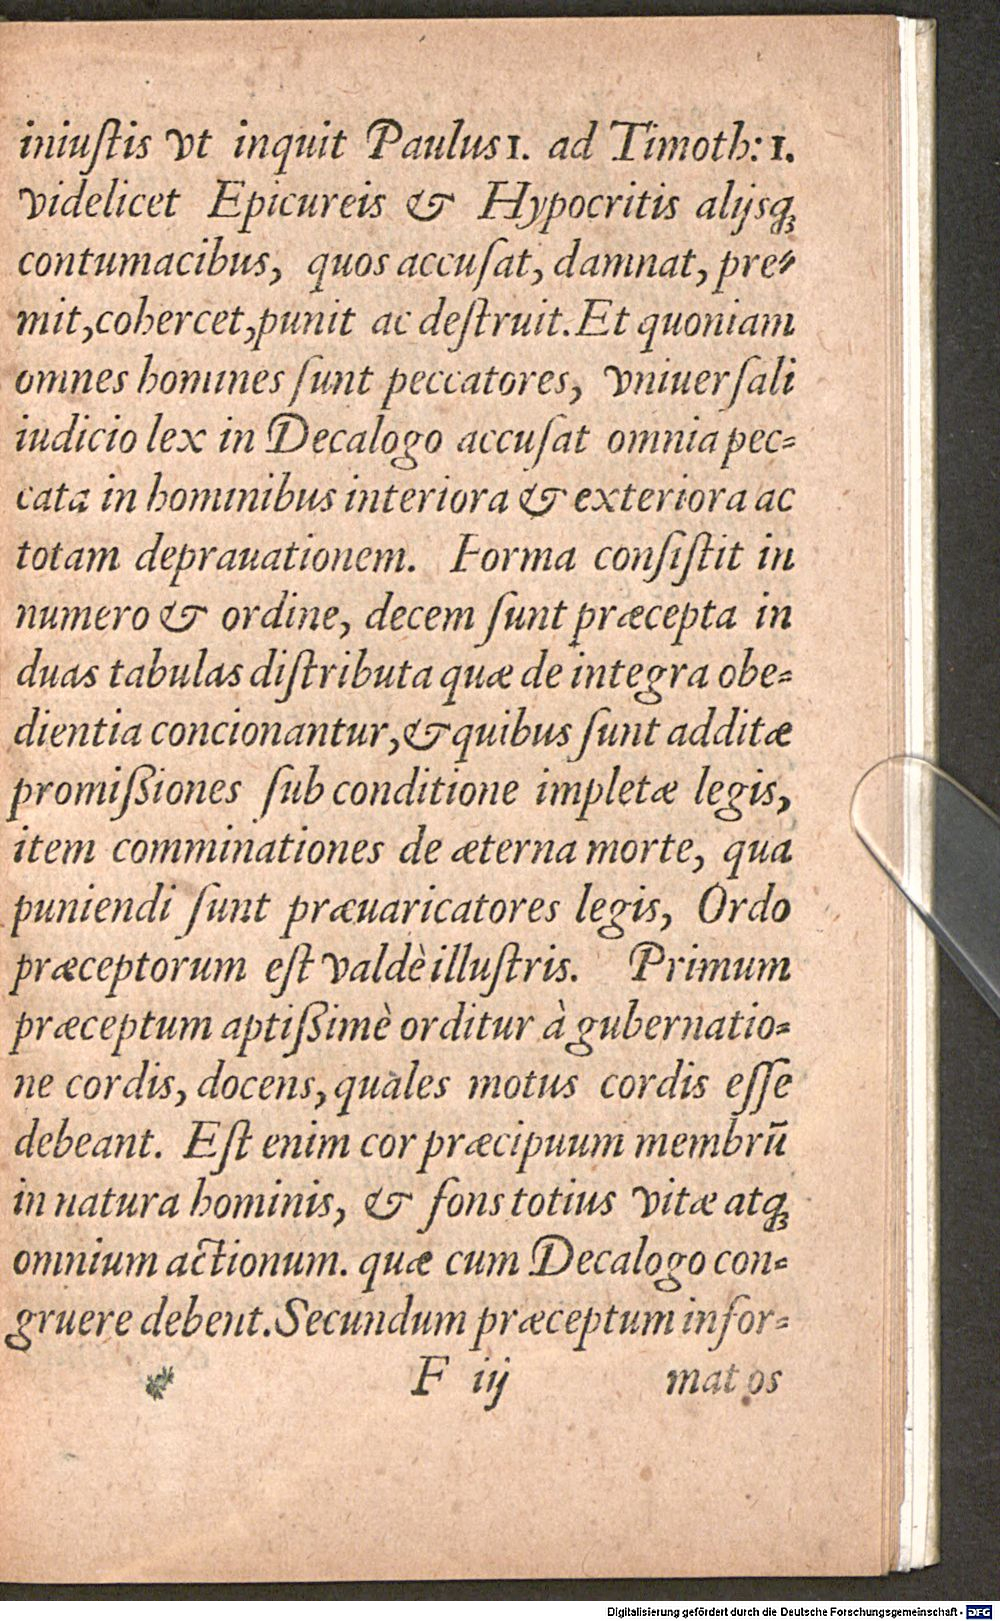 iniuſtis vt inquit Paulus 1. ad Timoth: 1.
videlicet Epicureis & Hypocritis alijsq́;
contumacibus, quos accuſat, damnat, pre-
mit, cohercet, punit ac deſtruit. Et quoniam
omnes homines ſunt peccatores, vniuerſali
iudicio lex in Decalogo accuſat omnia pec-
cata in hominibus interiora & exteriora ac
totam deprauationem. Forma conſiſtit in
numero & ordine, decem ſunt præcepta in
duas tabulas diſtributa quæ de integra obe-
dientia concionantur, & quibus ſunt additæ
promißiones ſub conditione impletæ legis,
item comminationes de æterna morte, qua
puniendi ſunt præuaricatores legis, Ordo
præceptorum eſt valdè illuſtris. Primum
præceptum aptißimè orditur à gubernatio-
ne cordis, docens, quales motus cordis eſſe
debeant. Eſt enim cor præcipuum membrū
in natura hominis, & fons totius vitæ atq;
omnium actionum. quæ cum Decalogo con-
gruere debent. Secundum præceptum infor-
F iij mat os
Digitalisierung gefördert durch die Deutsche Forschungsgemeinschaft - DFG